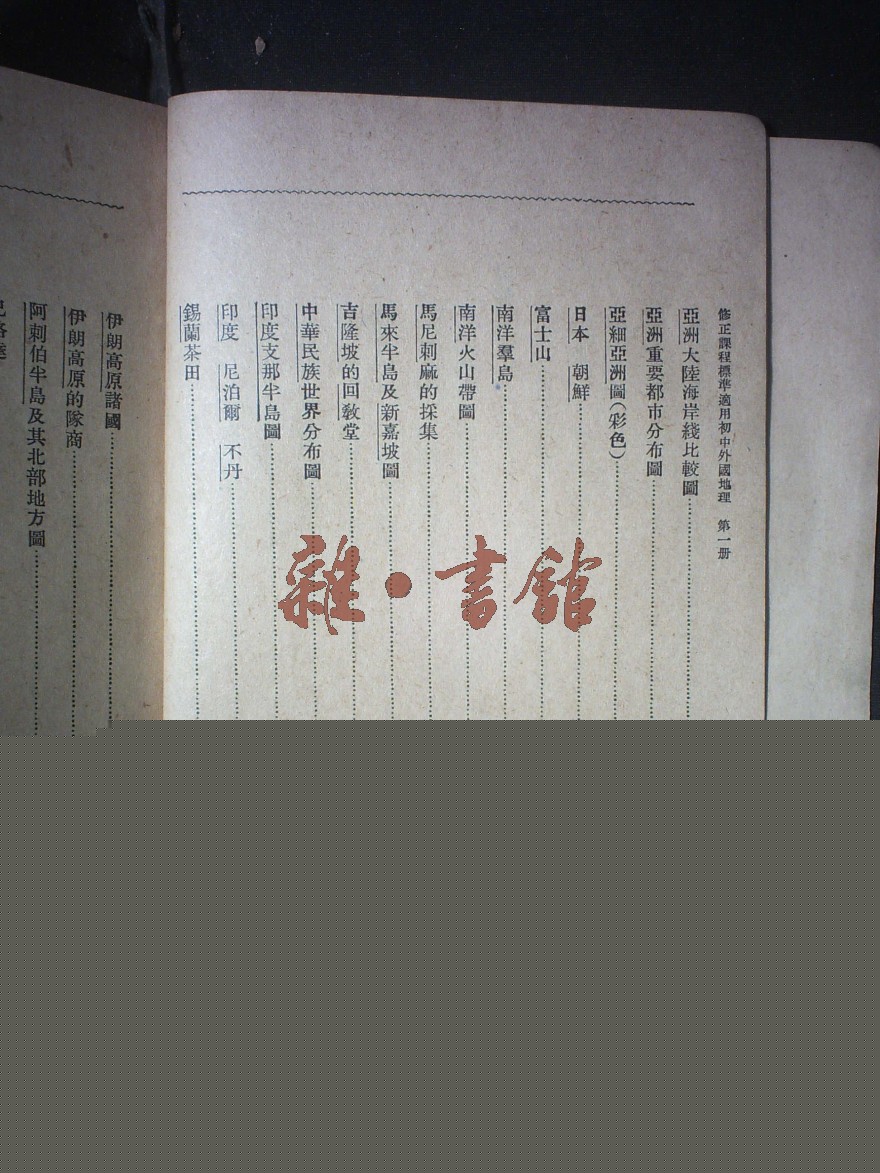 修正課程標準適用初中外國地理　第一册
亞洲大陸海岸綫比較圖
亞洲重要都市分布圖
亞細亞洲圖(彩色)
日本　朝鮮
富士山
南洋羣島
南洋火山帶圖
馬尼剌麻的採集
馬來半島及新嘉坡圖
吉隆坡的回敎堂
中華民族世界分布圖
印度支那半島圖
印度　尼泊爾　不丹
錫蘭茶田
伊朗高原諸國
伊朗高原的隊商
阿剌伯半島及其北部地方圖
雜·書館